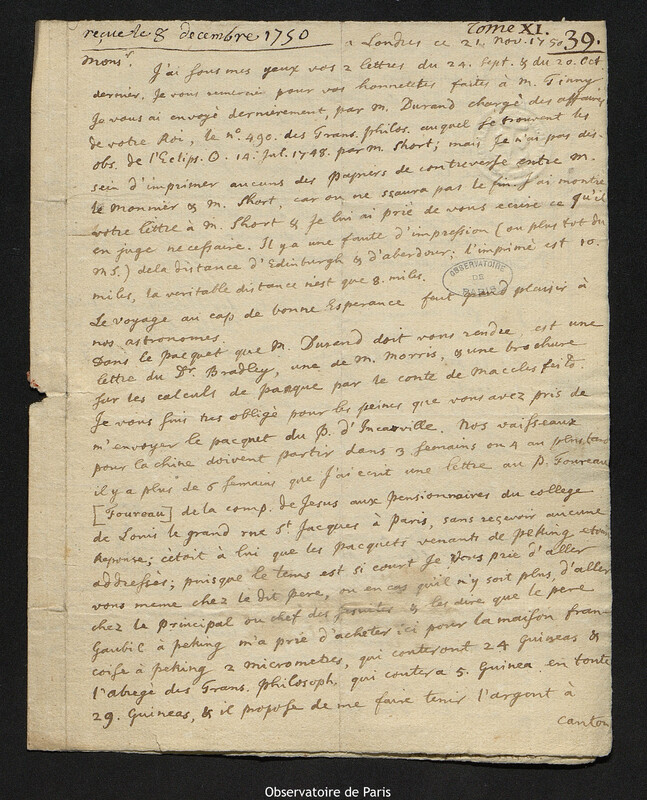 reçue le 8 decembre 1750
Tome XI.
39.
a Londres ce 21 Nov. 1750
Monsr.
J'ai sous mes yeux vos 2 lettres du 24. Sept. & du 20. Oct.
dernier. Je vous remercie pour vos honnetetés faites à M.
Je vous ai envoyé dernierement, par M. Durand chargé des affaires
de votre Roi, le no. 490. des Trans. philos. auquel se trouvent les
obs. de l'Eclips. ☉. 14. Jul. 1748. par M. Short; mais Je n'ai pas des-
sein d'imprimer aucuns des papiers de controverse entre M.
le Monnier & M. Short, car on ne sçaura pas le fin. J'ai montré
votre lettre à M. Short & Je lui ai prié de vous ecrire ce qu'il
en juge necessaire. Il y a une faute d'impression (ou plus tot du
MS.) de la distance d'Edinburgh & d'aberdour; l'imprimé est 10.
miles, la veritable distance n'est que 8. miles.
OBSERVATOIRE
DE
PARIS
Le voyage au cap de bonne Esperance fait grand plaisir à
nos astronomes.
Dans le pacquet que M. Durand doit vous rendre, est une
lettre du Dr. Bradley, une de M. Morris, & une brochure
sur les calculs de paque par le conte de Macclesfield.
Je vous suis tres obligé pour les peines que vous avez pris de
m'envoyer le pacquet du P. d'Incarville. Nos vaisseaux
pour la chine doivent partir dans 3 semains ou 4 au plus tard
il y a plus de 6 semains que J'ai ecrit une lettre au P. Foureau
[Foureau] de la comp. de Jesus aux pensionnaires du college
de Louis le grand rue St Jacques à Paris, sans reçevoir aucune
reponse; c'étoit à lui que les pacquets venants de peking etoient
addressés; puisque le tems est si court Je vous prie d'aller
vous meme chez le dit pere, ou en cas qu'il n'y soit plus, d'aller
chez le principal ou chef des Jesuites & les dire que le pere
Gaubil à peking m'a prié d'acheter ici pour la maison fran-
coise à peking 2 micrometres, qui couteront 24 Guineas &
l'abregé des Trans. Philosoph. qui coutera 5. Guinea. en toute
29. Guineas, & il propose de me faire tenir l'argent à
canton
Observatoire de Paris